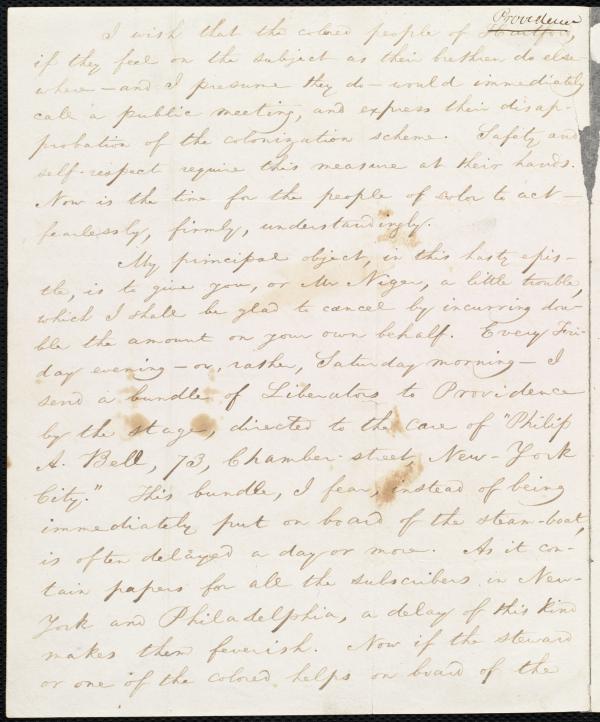 Providence
I wish that the colored people of Hartford,
if they feel on the subject as their brethren do else-
where—and I presume they do—would immediately
call a public meeting, and express their disap-
probation of the colonization scheme. Safety and
self-respect require this measure at their hands.
Now is the time for the people of color to act—
fearlessly, firmly, understandingly.
My principal object, in this hasty epis-
tle, is to give you, or Mr Niger, a little trouble,
which I shall be glad to cancel by incurring dou-
ble the amount on your own behalf. Every Fri-
day evening—or, rather, Saturday morning—I
send a bundle of Liberators to Providence
by the stage, directed to the care of "Philip
A. Bell, 73, Chamber-street, New-York
City." This bundle, I fear, instead of being
immediately put on board of the steam-boat,
is often delayed a day or more. As it con-
tain papers for all the subscribers in New-
York and Philadelphia, a delay of this kind
makes them feverish. Now if the steward
or one of the colored helps on board of the